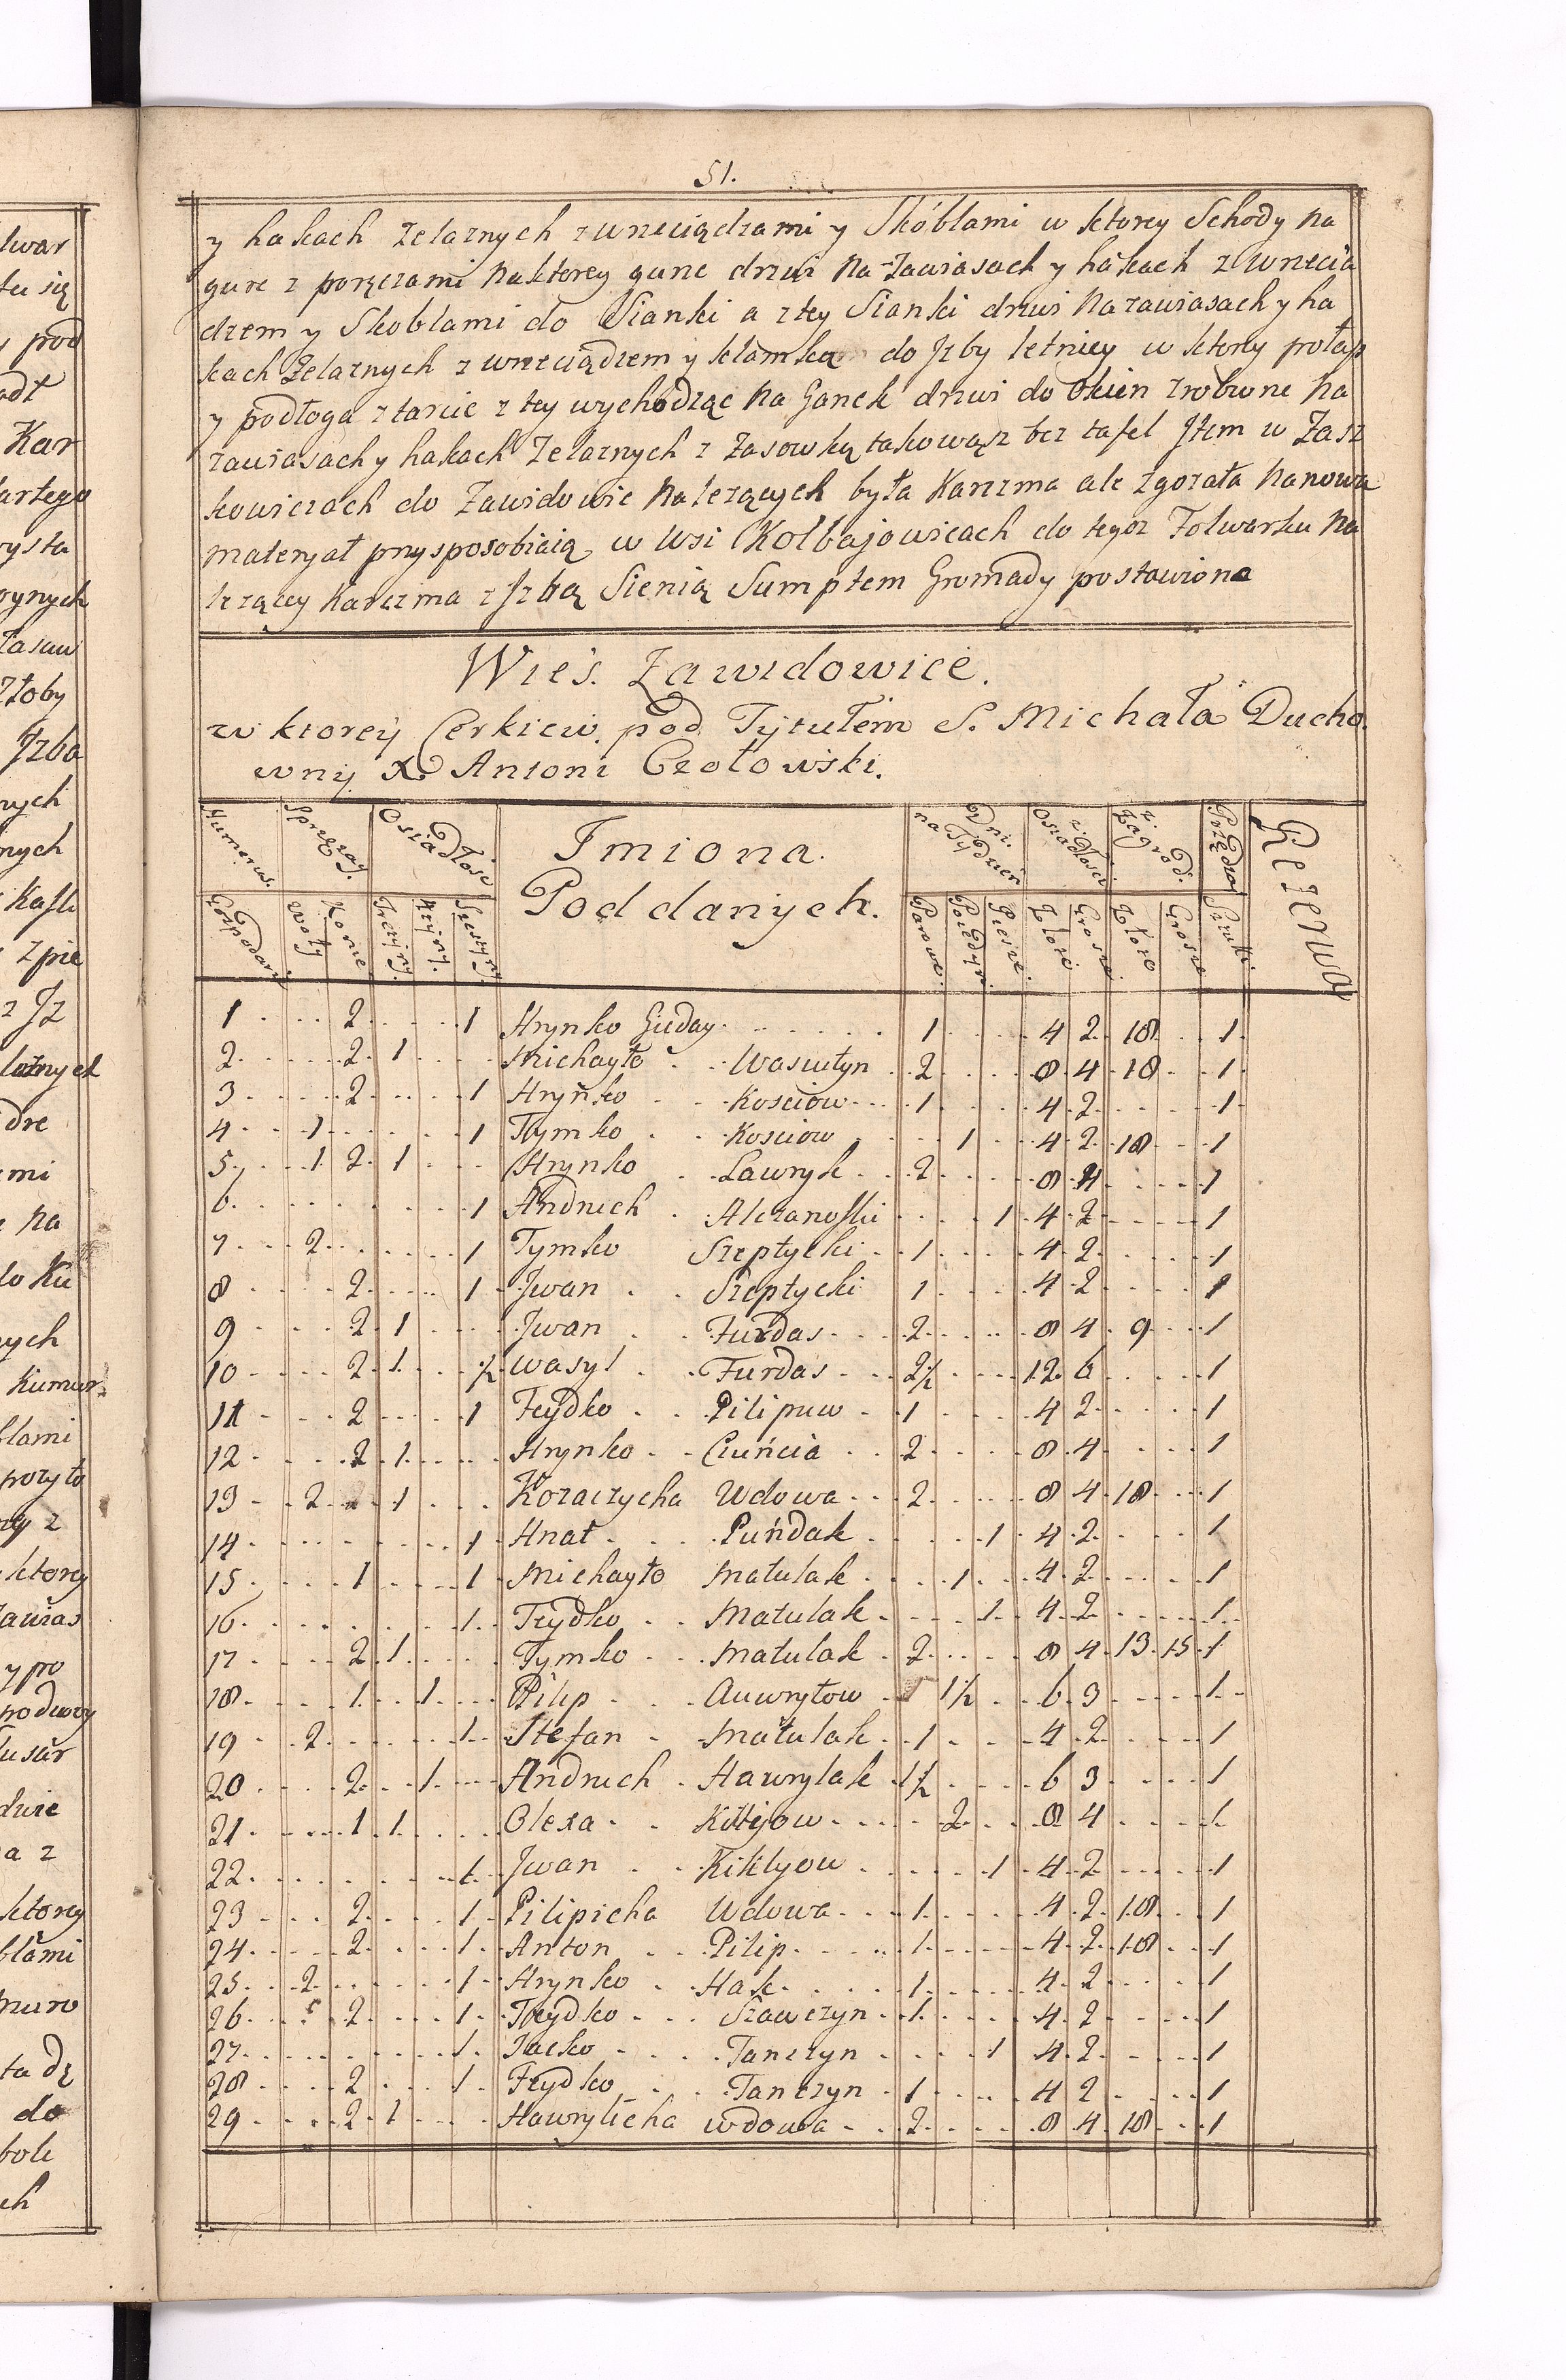 51.
y hakach zelaznych z wrzeciądzami y Skóblami w ktorey Schody na
gure z poręczami na ktorey gurze drzwi na zawiasach y hakach z wrzecią
dzem y Skoblami do Sianki a z tey Sianki drzwi na zawiasach y ha
kach Zelaznych z wrzeciądzem y klamką do Jzby letniey w ktory połap
y podłoga z tarcic z tey wychodząc na Ganek drzwi do Okien zrobione na
zawiasach y hakach Zelaznych z Zasowką takowąsz bez tafel Jtem w Zasz
kowicach do Zawidowic nalezących była Karczma ale zgorzała na nowa
materyał przysposobiaią w Wsi Kolbajowicach do tegoz Folwarku na
lezący Karczma z Jzbą Sienią Sumptem Gromady postawiona
Wieś. Zawidowice.
w ktorey Cerkiew. pod Tytułem S. Michała Ducho
wny X. Antoni Czołowski.
Numerus. Sprzęzay. Osiadłość Imiona. Dni. na Tydzień z Osiadłości z Zagrod. Przędza Rezerwa
Gospodarz Woły Konie Trzy ny. Szosty ny. Poddanych. Parowe. Poiedyn. Piesze. Złote Grosze Złote Grosze Sztuki
1 2 1 Hrynko Guday 1 4 2 18 1
2 2 1 Michayło Wasiutyn 2 8 4 18 1
3 2 1 Hryńko Kosciow 1 4 2 1
4 1 1 Tymko Kosciow 1 4 2 18 1
5 1 2 1 Hrynko Lawryk 2 8 4 1
6 1 Andruch 1 4 2 1
7 2 1 Tymko Szeptycki 1 4 2 1
8 2 1 Jwan Szeptycki 1 4 2 1
9 2 1 Jwan Furdas 2 8 4 9 1
10 2 1 ½ Wasyl Furdas 2½ 12 6 1
11 2 1 Fedko Pilipuw 1 4 2 1
12 2 1 Hrynko Ciuńcia 2 8 4 1
13 2 1 Kozaczycha Wdowa 2 8 4 18 1
14 1 Hnat Puńdak 1 4 2 1
15 1 1 Michayło Matulak 1 4 2 1
16 1 Fedko Matulak 1 4 2 1
17 2 1 Tymko Matulak 2 8 4 13 15 1
18 1 1 Pilip 1½ 6 3 1
19 2 1 Stefan Matulak 1 4 2 1
20 2 1 Andruch Hawrylak 1½ 6 3 1
21 1 1 Olexa 2 8 4 1
22 1 Jwan Kiklyow 1 4 2 1
23 2 1 Pilipicha Wdowa 1 4 2 18 1
24 2 1 Anton Pilip 1 4 2 18 1
25 2 1 Hrynko Hak 1 4 2 1
26 2 1 Fedko Szawczyn 1 4 2 1
27 1 Jacko Tanczyn 1 4 2 1
28 2 1 Fedko Tanczyn 1 4 2 1
29 2 1 Hawrylicha wdowa 2 8 4 18 1